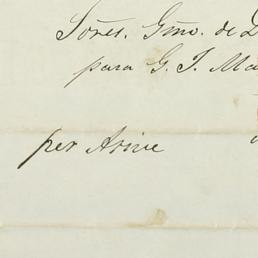 Sores. Gmo. de
para G. J. Ma
per Arive